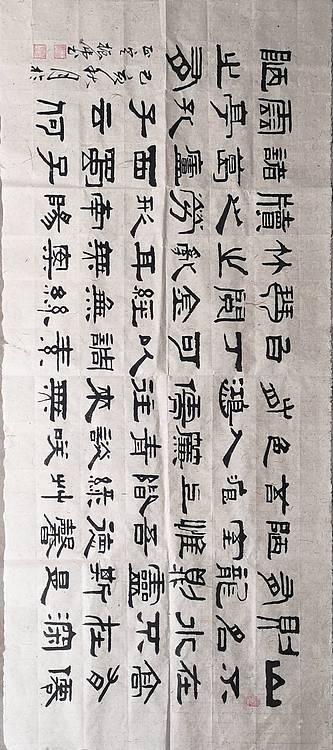 山不在高有僊
則名水不在深
有龍則靈斯是
陋室惟吾德馨
苔痕上階綠艸
色入簾青談笑
有鴻儒往來無
白丁可以調素
琴閱金經無絲
竹之亂耳無案
牘之勞形南陽
諸葛廬西蜀子
雲亭孔子云何
陋之有
己亥秋月於